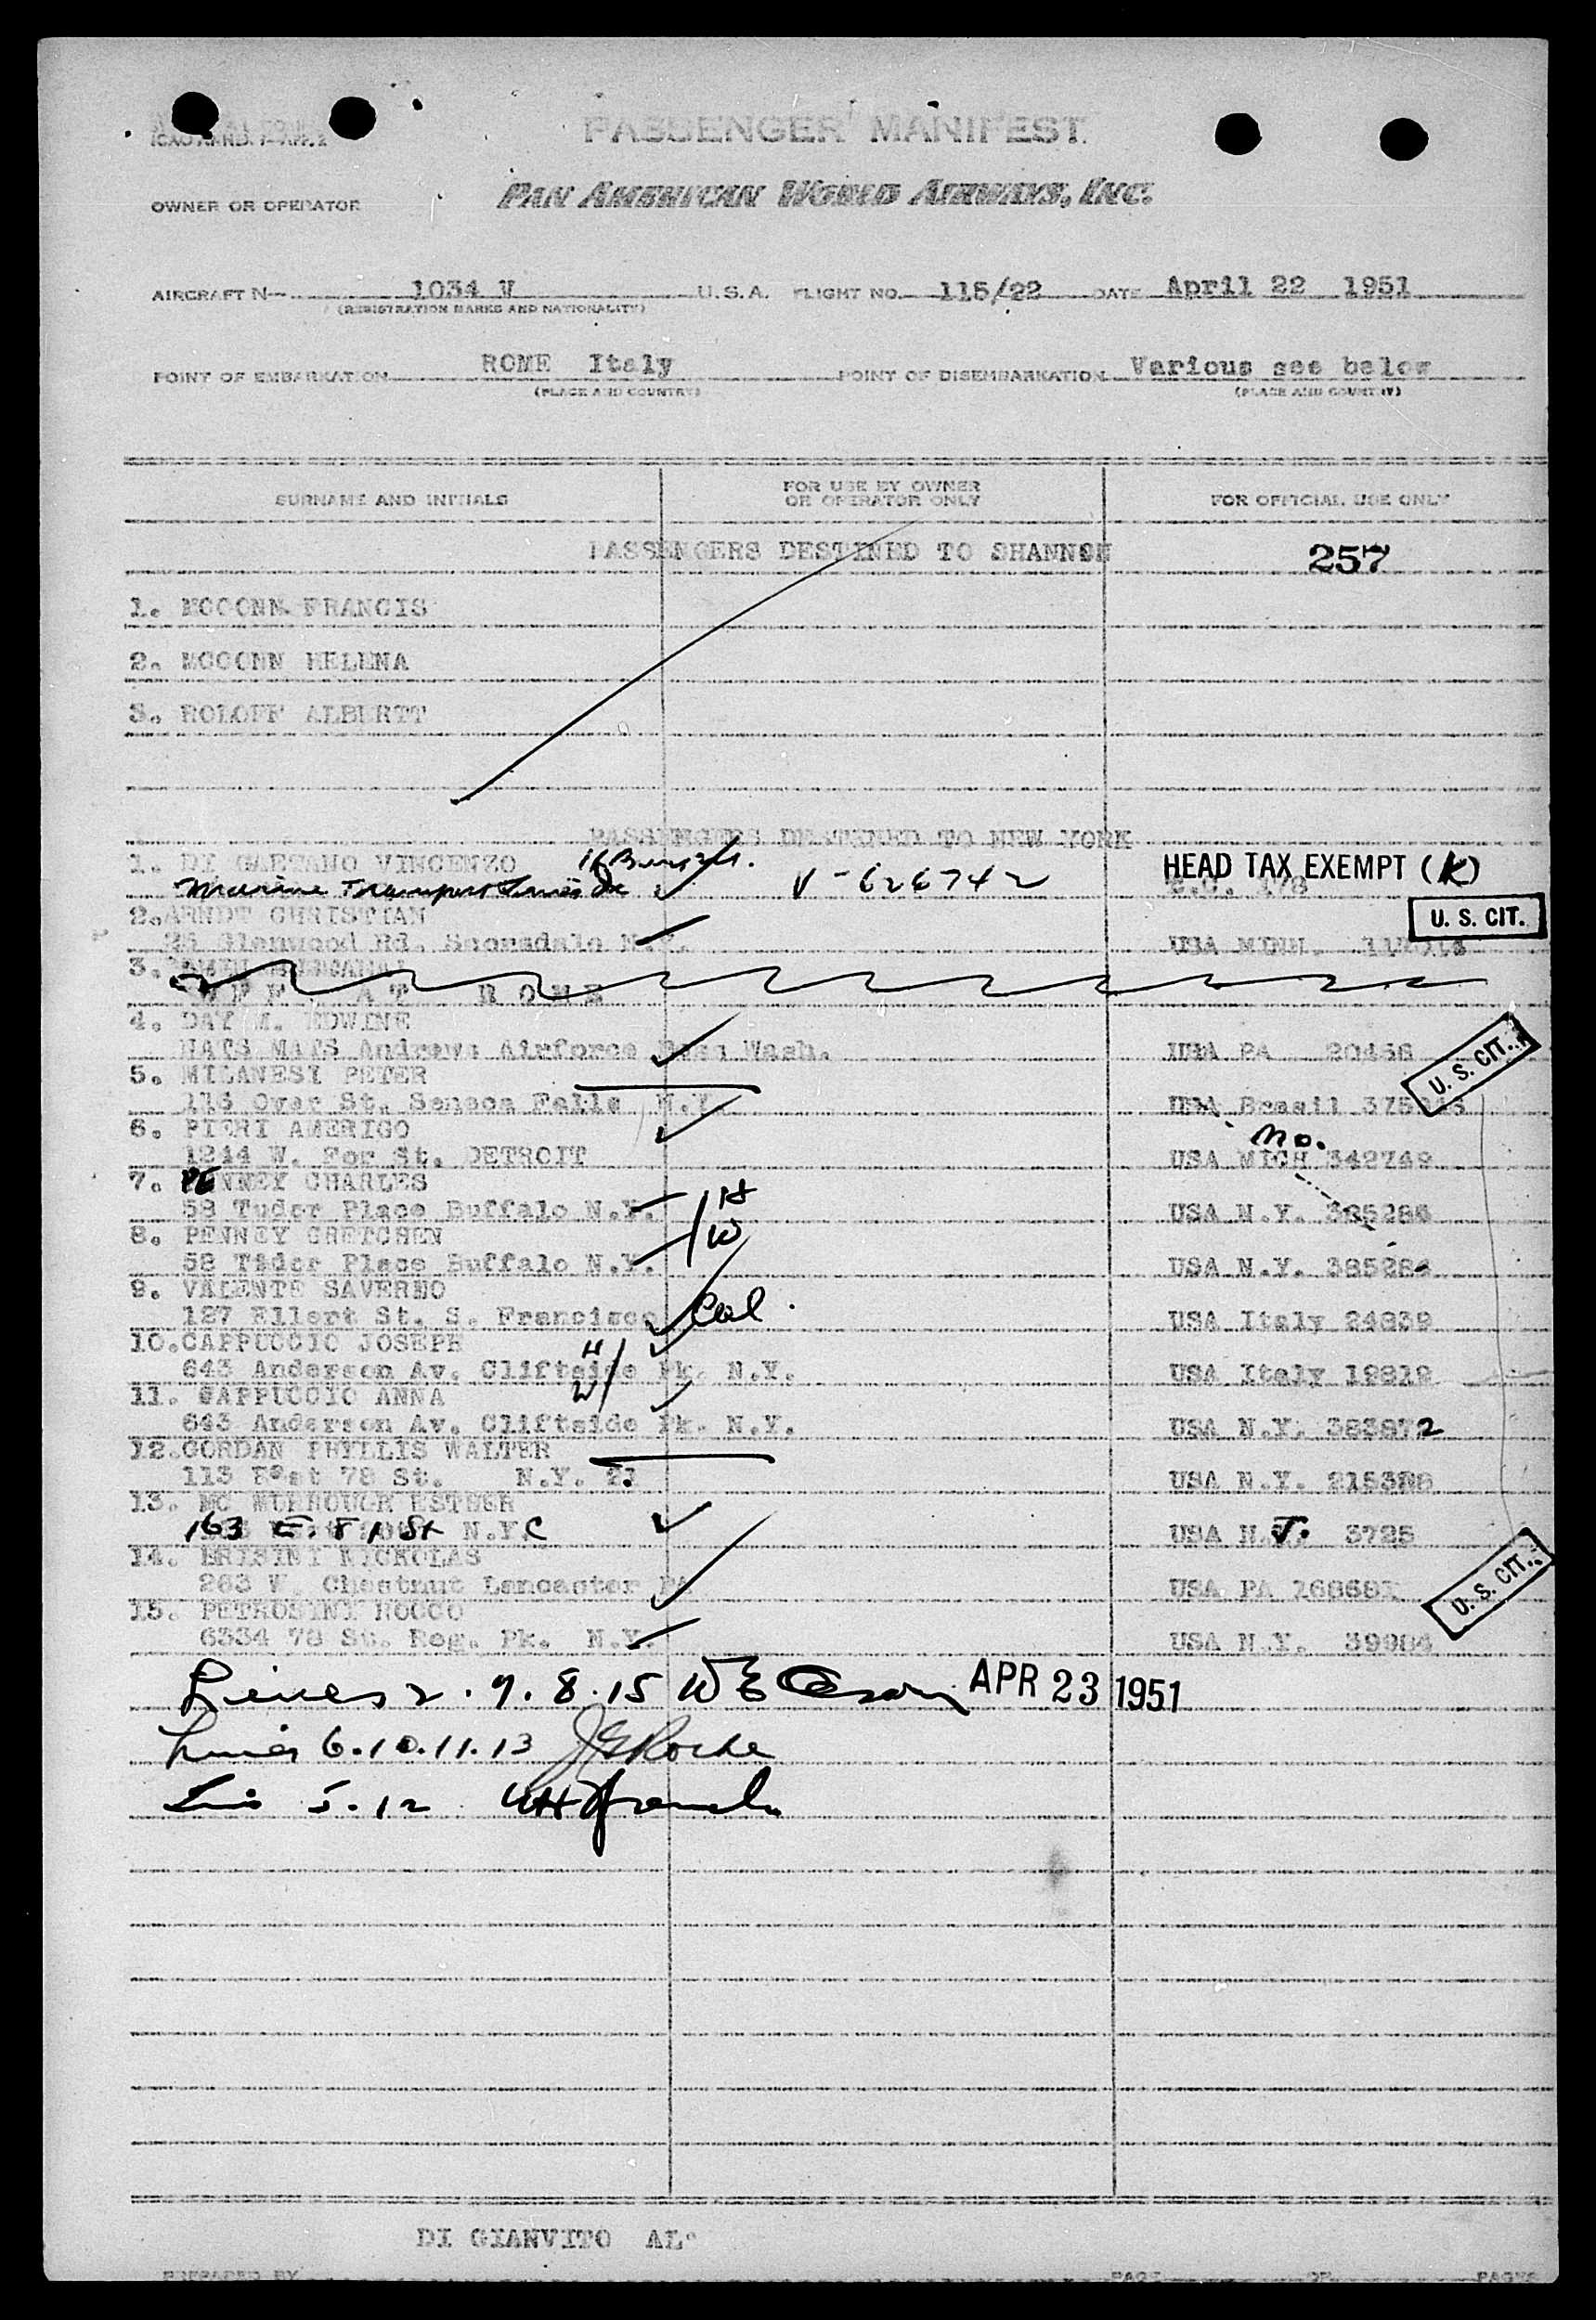 PASSENGER MANIFEST
OWNER OR OPERATOR PAN AMERICAN WORLD AIRWAYS, INC.
AIRCRAFT N- 1034 V U.S.A. FLIGHT NO. 115/22 DATE April 22 1951
(REGISTRATION MARKS AND NATIONALITY)
POINT OF EMBARKATION ROME Italy POINT OF DISEMBARKATION Various see below
(PLACE AND COUNTRY) (PLACE AND COUNTRY)
SURNAME AND INITIALS FOR USE BY OWNER OR OPERATOR ONLY FOR OFFICIAL USE ONLY
PASSENGERS DESTINED TO SHANNON 257
1. MCCONN FRANCIS
2. MCCONN HELENA
3. ROLOFF ALBERTT
PASSENGERS DESTINED TO NEW YORK
1. DI GAETANO VINCENZO HEAD TAX EXEMPT (K)
Marine Transport Lines Inc V-626742 178
2. ARNDT CHRISTIAN U. S. CIT.
26 Glenwood Rd. Scarsdale N.Y. USA MINN.
3.
OFF AT ROME
4. DAY M. EDWINE
HATS MATS Andrews Airforce Base Wash. USA PA 20456 U. S. CIT.
5. MILANESI PETER
116 Over St. Seneca Falls N.Y. USA Brasil
6. PIERI AMERIGO no.
1244 W. For St. DETROIT USA MICH 342749
7. PENNEY CHARLES
58 Tudor Place Buffalo N.Y. H USA N.Y. 385286
8. PENNEY GRETCHEN W
58 Tudor Place Buffalo N.Y. USA N.Y.
9. VALENTE SAVERNO
127 Ellert St. S. Francisco Cal. USA Italy 24839
10. CAPPUCCIO JOSEPH H
643 Anderson Av. Cliftside Pk. N.Y. USA Italy 19819
11. CAPPUCCIO ANNA W
643 Anderson Av. Cliftside Pk. N.Y. USA N.Y. 383872
12. GORDAN PHYLLIS WALTER
113 East 78 St. N.Y. 21 USA N.Y. 215386
13. MC ESTHER
163 E. 81 St N.Y.C USA N.J. 3725
14. BRISINI NICKOLAS
263 W. Chestnut Lancaster PA USA PA 168681 U. S. CIT.
15. PETROSINI ROCCO
6334 78 St. Reg. Pk. N.Y. USA N.Y. 39984
Lines 2. 7. 8. 15 APR 23 1951
Lines 6.10.11.13 J E Roche
Line 5.12
DI GIANVITO AL
PREPARED BY PAGE OF PAGES